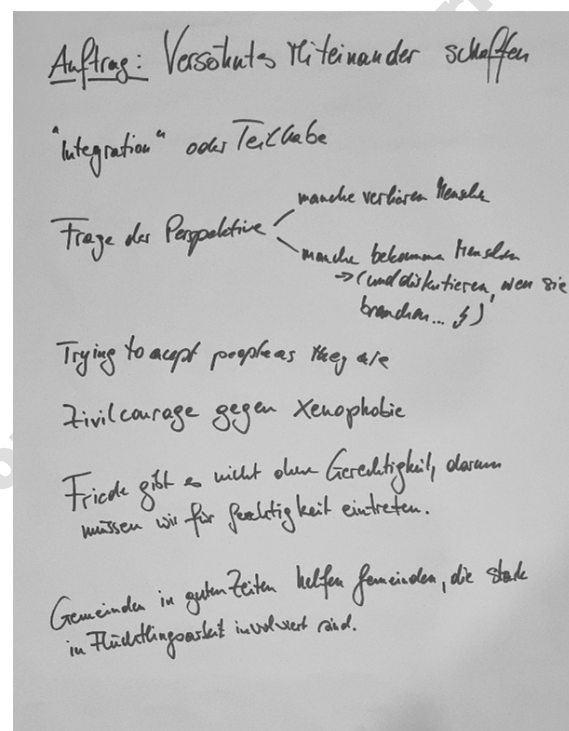 Auftrag: Versöhntes Miteinander schaffen
"Integration" oder Teilhabe
Frage der Perspektive
manche verlieren Menschen
manche bekommen Menschen
→ (und diskutieren, wen sie
brauchen... ↯)
Trying to acept people as they are
Zivilcourage gegen Xenophobie
Friede gibt es nicht ohne Gerechtigkeit, darum
müssen wir für Gerechtigkeit eintreten.
Gemeinden in guten Zeiten helfen Gemeinden, die stark
in Flüchtlingsarbeit involviert sind.